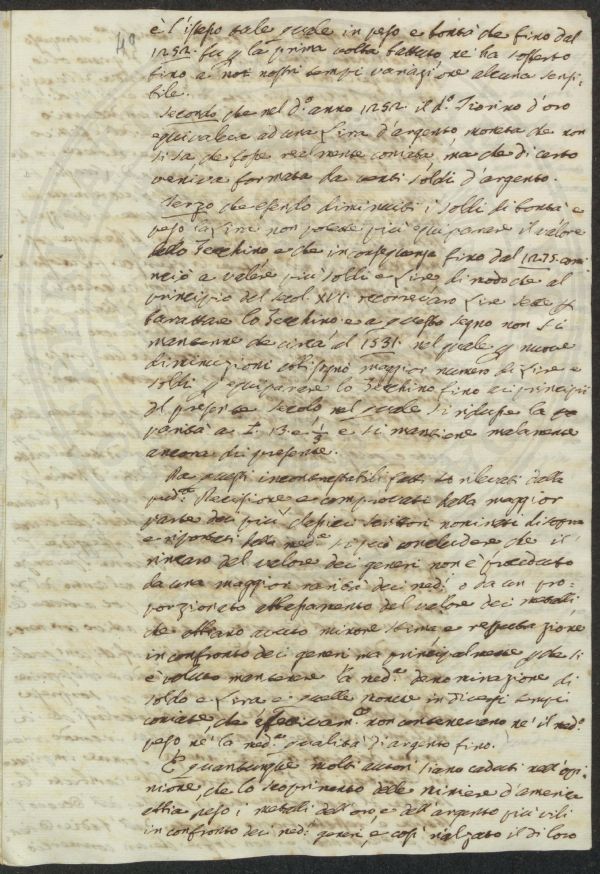 49
è l'istesso tale quale in peso e bontà che fino dal
1252. fu p la prima volta battuto, nè ha sofferto
fino a noi nostri tempi variazione alcuna sensi-
bile.
Secondo che nel d.º anno 1252 il d.º Fiorino d'oro
equivaleva ad una Lira d'argento moneta che non
si sa che fosse realmente coniata, ma che di certo
veniva formata da venti soldi d'argento.
Terzo che essendo diminuiti i soldi di bontà e
peso la Lira non potette più equiparare il valore
dello Zecchino e che in conseguenza fino dal 1275 com
inciò a valere più soldi e Lire di modo che al
principio del secol XVI. occorrevano Lire sette p
barattare lo Zecchino e a questo segno non si
mantenne che circa al 1531. nel quale p nuove
diminuzioni bisognò maggior numero di Lire e
soldi p equiparare lo Zecchino fino ai principii
del presente secolo nel quale si ristese la
parità a £. 13 e 1/3 e si mantiene malamente
ancora di presente.
Da questi incontrastabili fatti rilevati dalla
med.ª Recensione e comprovati dalla maggior
parte dei più classici scrittori nominati di sopra
e riportati dalla med.ª si può concludere che il
rincaro del valore dei generi non è proceduto
da una maggior rarità dei med.i o da un pro-
porzionato abbassamento del valore dei metalli
che abbiano avuto minore stima e reputazione
in confronto dei generi ma principalmente p che si
è voluto mantenere la med.ª denominazione di
soldo e Lira a quelle monete in diversi tempi
coniate, che effettivam.e non contenevano nè il med.º
peso nè la med.ª qualità d'argento fino.
E quantunque molti autori siano caduti nell'opi-
nione, che lo scoprimento delle miniere d'america
abbia reso i metalli dell'oro, e dell'argento più vili
in confronto dei med.i generi, e così rialzato il di loro